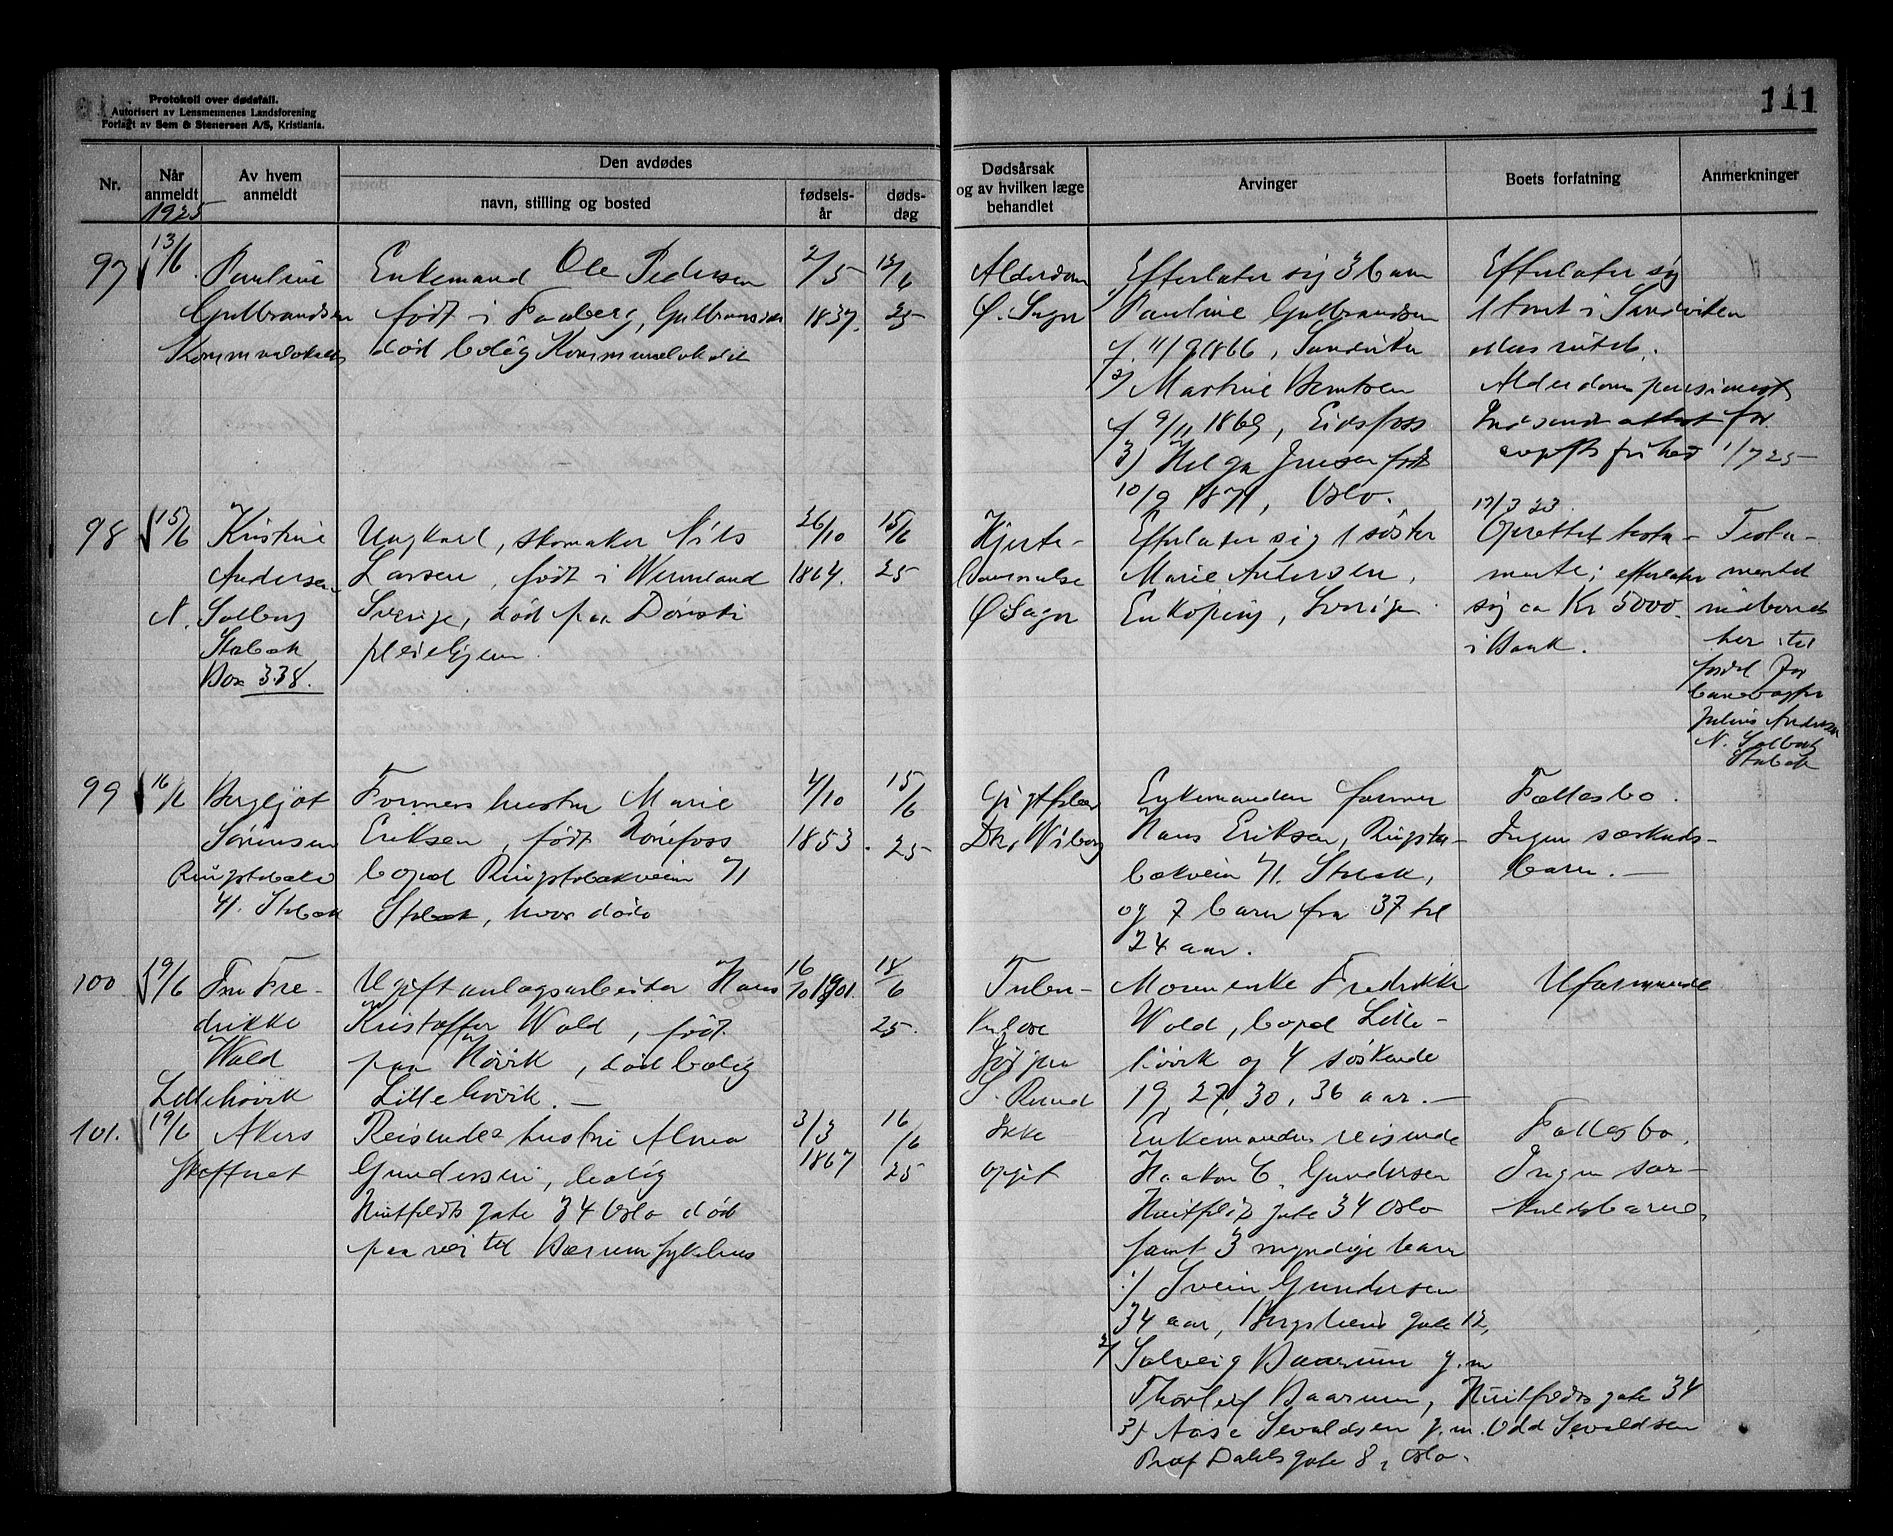 Protokoll over dødsfall.
Autorisert av Lensmennenes Landsforening
Forlagt av Sem & Stenersen A/S, Kristiania.
111
Nr.
Når anmeldt
1925
Av hvem anmeldt
Den avdødes
navn, stilling og bosted
fødsels-år
døds-dag
Dødsårsak og av hvilken læge behandlet
Arvinger
Boets forfatning
Anmerkninger
97
13/6
Pauline
Gulbrandsen
Enkemand Ole Pedersen
født i Faaberg, Gulbransdal
død bolig Kommunelokalet
2/5
1837.
12/6
25
Alderdom
Ø. Sagn
Efterlater sig 3 barn
1) Pauline Gulbrandsen
f. 11/9 1866, Sandvika
2) Martine Berntsen
f. 9/11 1869, Eidsfoss
3) Helga Jensen født
10/9 1871, Oslo.
Efterlater sig
1 tomt i Sandviken
Alderdoms pensionist
Indsendt attest for
avgiftsfrihed 1/7 25
98
15/6
Kristine
Andersen
N. Solberg
Stabæk
Box 338.
Ungkarl, skomaker Nils
Larsen, født i Wermland
Sverige, død paa Dønski
pleiehjem.
26/10
1864.
15/6
25
Hjerte-
lammelse
Ø Sagn
Efterlater sig 1 søster
Marie Andersen,
Enkøping, Sverige.
17/3 23.
Oprettet testa-
mente; efterlater
sig ca Kr 5000.
i Bank.
Testa-
mentet
her til
fordel for
Julius Andersen
N. Solberg
Stabæk
99
16/6
Bergljot
Sørensen
Ringstabækv
71. Stabæk
Formers hustru Marie
Eriksen, født Hønefoss
bopæl Ringstabækveien 71
Stabæk, hvor døde
4/10
1853.
15/6
25
Dr. Wiborg
Enkemanden former
Hans Eriksen, Ringsta-
bækveien 71. Stabæk,
og 7 barn fra 37 til
24 aar.
Fællesbo.
Ingen særkuds-
barn.
100
19/6
Fru Fre-
drikke
Wold
Lillehøvik
Ugift anlægsarbeider Hans
Kristoffer Wold, født
paa Høvik, død bolig
Lillehøvik.
16/10 1901.
18/6
25.
Tuber-
kulose
S. Ruud
Moren enke Fredrikke
Wold, bopæl Lille-
høvik og 4 søskende
19, 27, 30, 36 aar.
Uformuende
101.
19/6
Akers
Skifteret
Reisendes hustru Alma
Gundersen, bolig
Huitfeldts gate 34 Oslo død
paa vei til Bærum sykehus
3/3
1867
16/6
25
Ikke
opgit
Enkemanden reisende
Haakon C. Gundersen
Huitfeldts gate 34 Oslo
samt 3 myndige barn
1) Svein Gundersen
34 aar, Bergsliens gate 12,
2) Solveig Baarum g.m
Thorleif Baarum, Huitfeldts gate 34
3) Aase Sevaldsen g.m. Odd Sevaldsen
Prof Dahls gate 8, Oslo.
Fællesbo.
Ingen sær-
kuldsbarn.